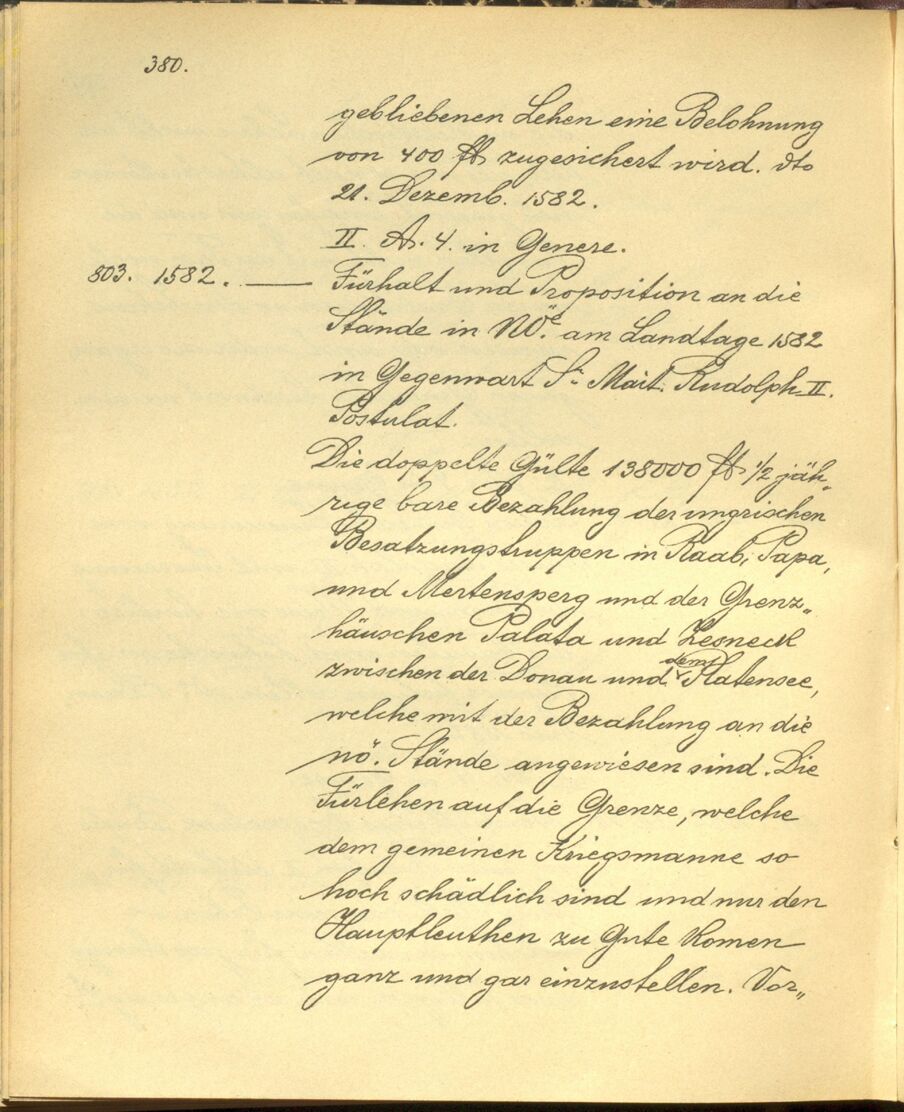 380.
gebliebenen Lehen eine Belohnung
von 400 fl zugesichert wird. dto
21. Dezemb. 1582.
II. A. 4. in Genere.
803. 1582. — Fürhalt und Proposition an die
Stände in NÖ. am Landtage 1582
in Gegenwart Sr Mait. Rudolph II.
Postulat.
Die doppelte Gülte 138000 fl 1/2 jäh„
rige bare Bezahlung der ungrischen
Besatzungstruppen in Raab, Papa,
und Mertensperg und der Grenz„
häuschen Palata und Zesneck
zwischen der Donau und dem Platensee,
welche mit der Bezahlung an die
nö. Stände angewiesen sind. Die
Fürlehen auf die Grenze, welche
dem gemeinen Kriegsmanne so
hoch schädlich sind und nur den
Hauptleuthen zu Gute komen
ganz und gar einzustellen. Vor„